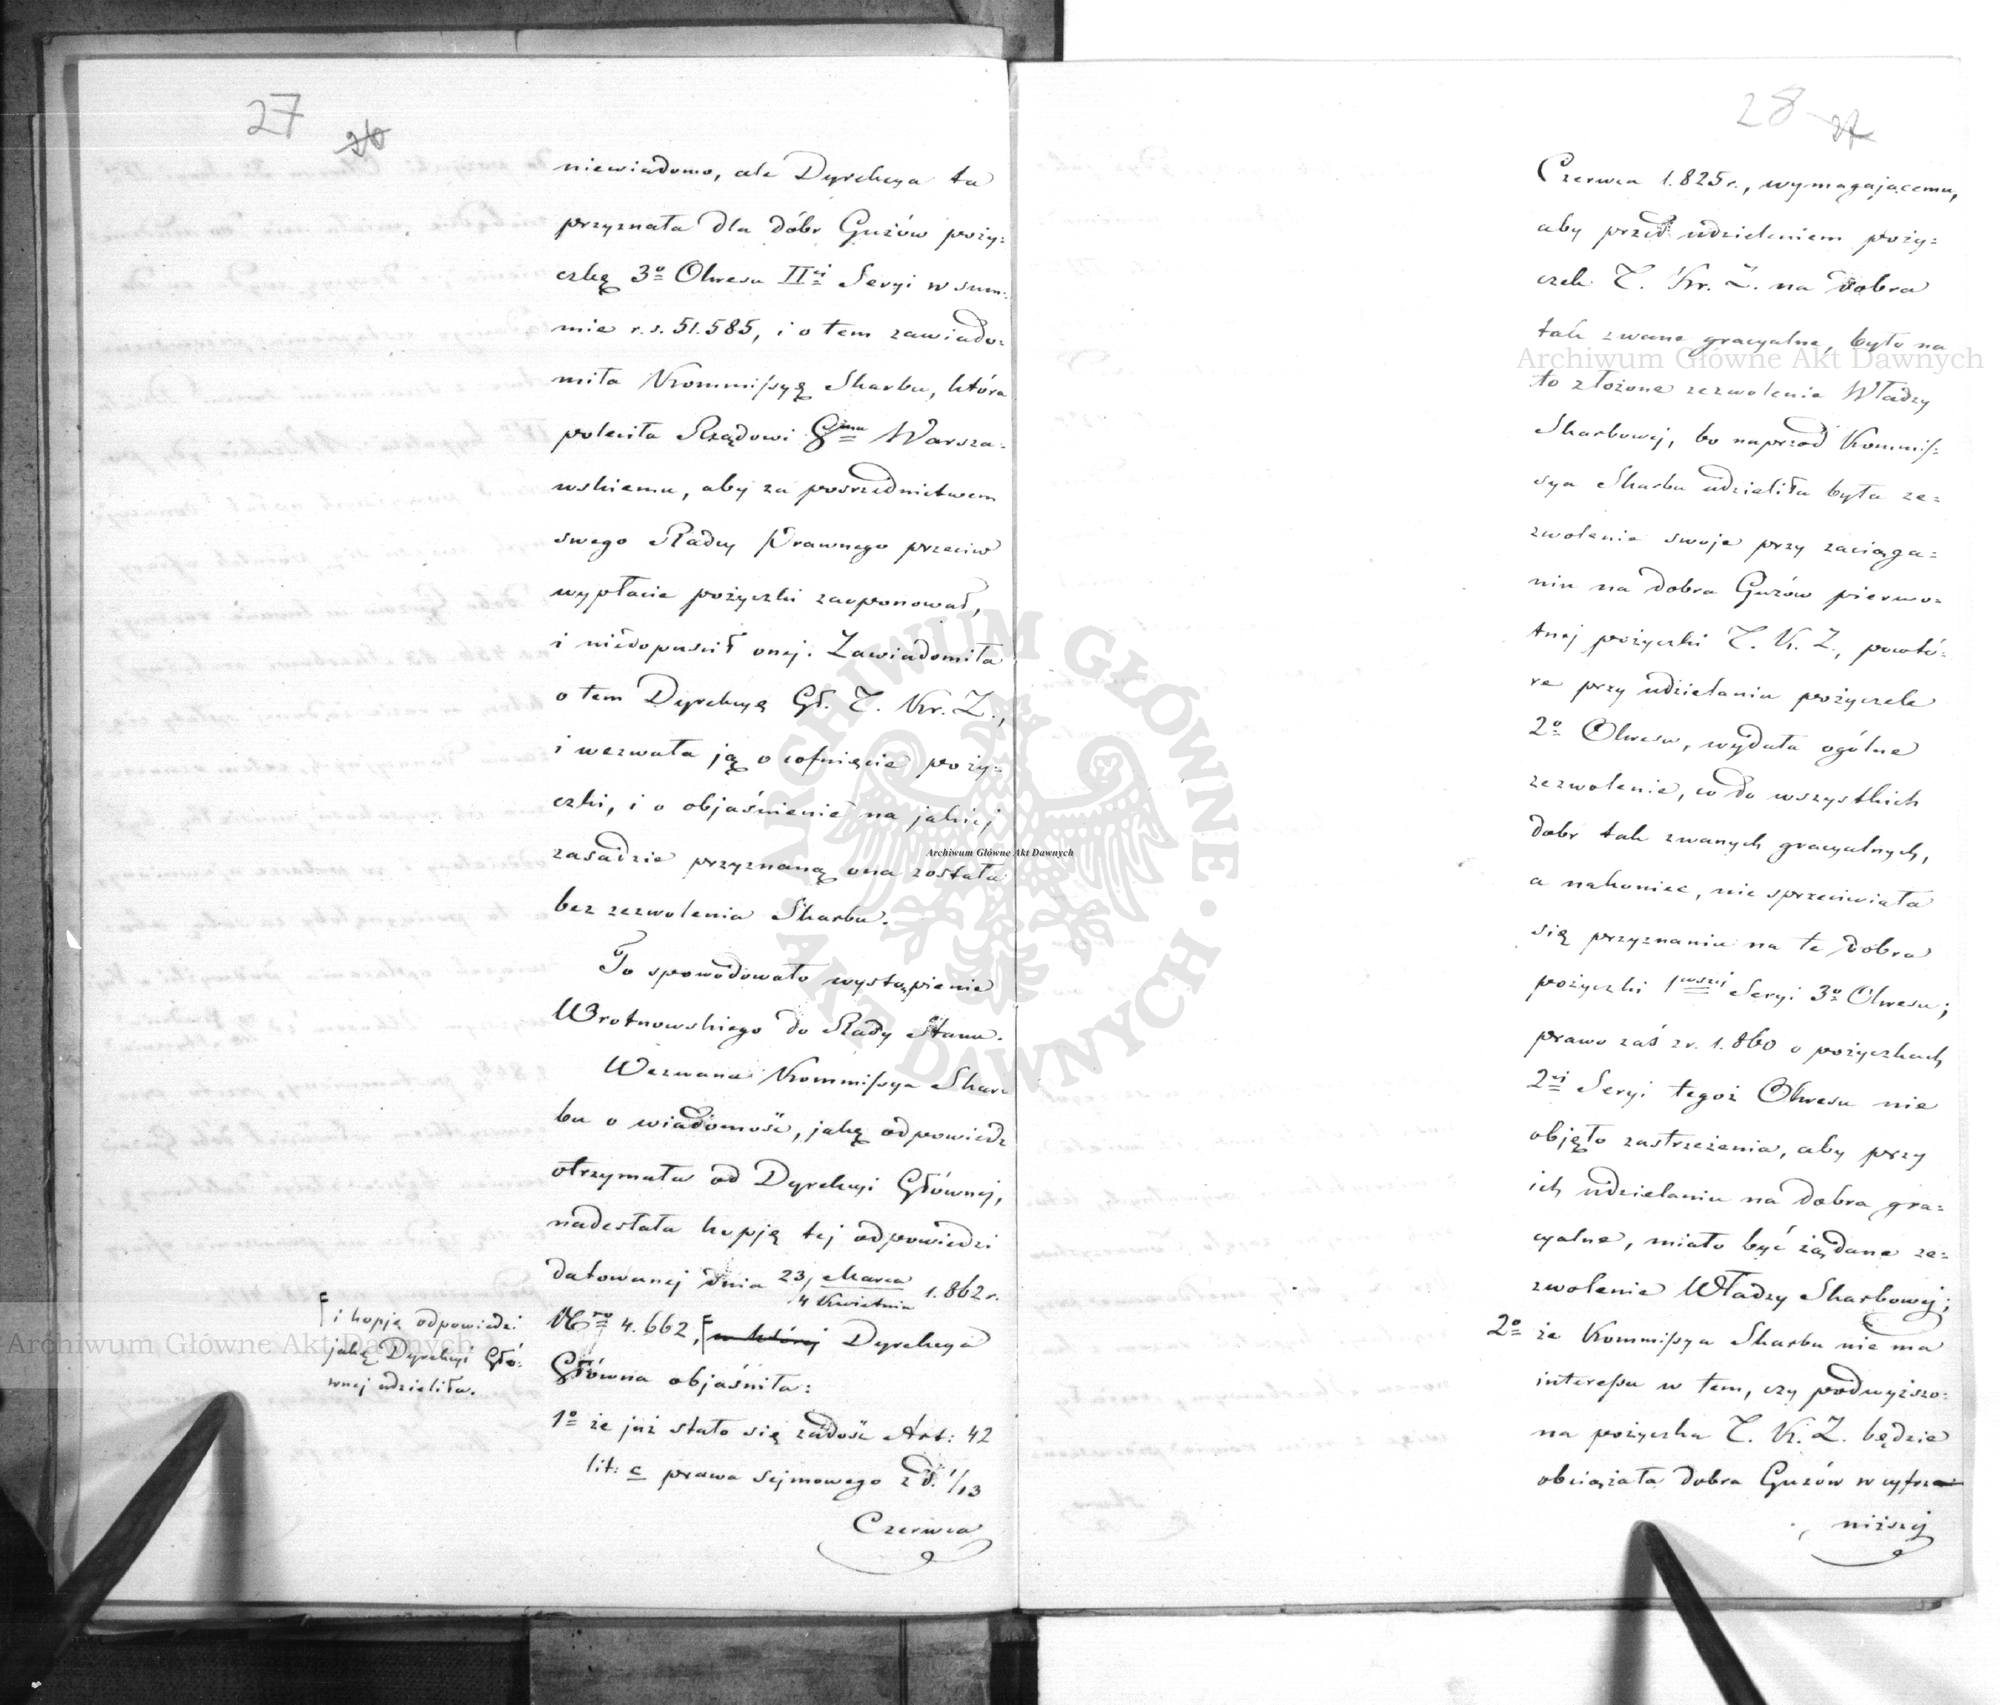 27
26
niewiadomo, ale Dyrekcya ta
przyznała dla dóbr Guzów poży-
czkę 3o Okresu IIéj Seryi w sum-
mie r. s. 51.585, i o tem zawiado-
miła Kommissyę Skarbu, która
poleciła Rządowi Gmu Warsza-
wskiemu, aby za pośrednictwem
swego Radcy Prawnego przeciw
wypłacie pożyczki zaoponował,
i niedopuścił onej. Zawiadomiła
o tem Dyrekcyę Gł. T. Kr. Z.,
i wezwała ją o cofnięcie poży-
czki, i o objaśnienie na jakiej
zasadzie przyznaną ona została
bez zezwolenia Skarbu.
To spowodowało wystąpienie
Wrotnowskiego do Rady Stanu.
Wezwana Kommissya Skar-
bu o wiadomość, jaką odpowiedź
otrzymała od Dyrekcyi Głównej,
nadesłała kopją tej odpowiedzi
datowanej dnia 23 Marca / 4 Kwietnia 1.862 r.
Nro 4.662, w której Dyrekcya
Główna objaśniła:
i kopją odpowiedzi
jaką Dyrekcyi Głó-
wnej udzieliła.
1o że już stało się zadość Art: 42
lit: c prawa sejmowego z d. 1/13
Czerwca
28
27
Czerwca 1.825 r., wymagającemu,
aby przed udzieleniem poży-
czek T. Kr. Z. na dobra
tak zwane gracyalne, było na
to złożone zezwolenie Władzy
Skarbowej, bo naprzód Kommis-
sya Skarbu udzieliła była ze-
zwolenie swoje przy zaciąga-
niu na dobra Guzów pierwo-
tnej pożyczki T. K. Z., powtó-
re przy udzielaniu pożyczek
2o Okresu, wydała ogólne
zezwolenie, co do wszystkich
dóbr tak zwanych gracyalnych,
a nakoniec, nie sprzeciwiała
się przyznaniu na te dobra
pożyczki 1wszéj Seryi 3o Okresu;
prawo zaś z r. 1.860 o pożyczkach
2éj Seryi tegoż Okresu nie
objęło zastrzeżenia, aby przy
ich udzielaniu na dobra gra-
cyalne, miało być żądane ze-
zwolenie Władzy Skarbowej;
2o że Kommissya Skarbu nie ma
interessu w tem, czy podwyższo-
na pożyczka T. K. Z. będzie
obciążała dobra Guzów w cyfrze
niższej
Archiwum Główne Akt Dawnych
Archiwum Główne Akt Dawnych
Archiwum Główne Akt Dawnych
ARCHIWUM GŁÓWNE · AKT DAWNYCH ·